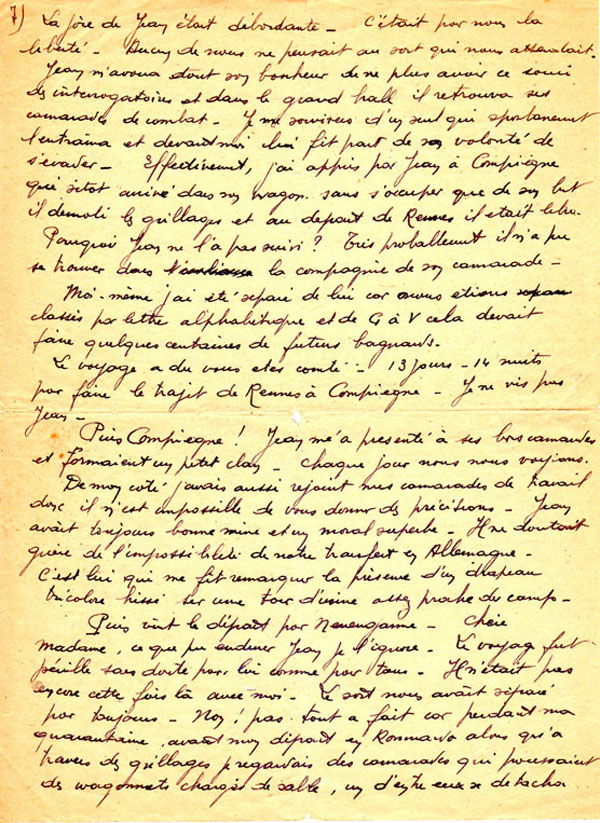 7)
La joie de Jean était débordante - C'était pour nous la
liberté - Aucun de nous ne pensait au sort qui nous attendait.
Jean m'avoua tout son bonheur de ne plus avoir ce souci
des interrogatoires et dans le grand hall il retrouva ses
camarades de combat - Je me souviens d'un seul qui spontanement
l'entraina et devant moi lui fit part de sa volonté de
s'évader - Effectivement, j'ai appris par Jean à Compiègne
que sitot arrivé dans son wagon sans s'occuper que de son but
il demoli les grillages et au depart de Rennes il etait libre.
Pourquoi Jean ne l'a pas suivi ? Très probablement il n'a pu
se trouver dans la compagnie de son camarade -
Moi-même j'ai été séparé de lui car nous etions
classés par lettre alphabétique et de G à V cela devait
faire quelques centaines de futurs bagnards.
Le voyage a du vous etre conté - 13 jours - 14 nuits
pour faire le trajet de Rennes à Compiegne - Je ne vis pas
Jean -
Puis Compiegne ! Jean m'a presenté à ses bons camarades
et formaient un petit clan - chaque jour nous nous voyions.
De mon coté j'avais aussi rejoint mes camarades de travail
donc il m'est impossible de vous donner des précisions - Jean
avait toujours bonne mine et un moral superbe - Il ne doutait
guère de l'impossibilité de notre transfert en Allemagne -
C'est lui qui me fit remarquer la présence d'un drapeau
tricolore hissé sur une tour d'usine assez proche du camp -
Puis vint le départ pour Neuengamme - Chère
Madame, ce que pu endurer Jean je l'ignore - Le voyage fut
pénible sans doute pour lui comme pour tous - Il n'était pas
encore cette fois là avec moi - Le sort nous avait séparé
pour toujours - Non ! pas tout a fait car pendant ma
quarantaine, avant mon départ en alors qu'a
travers des grillages je regardais des camarades qui poussaient
des wagonnets chargés de sable, un d'entre eux se detacha